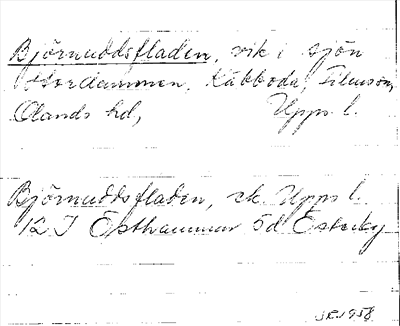 Björnuddsfladen, vik i sjön
Stordammen, Käbboda, Films sn,
Olands hd, Upps. l.
Björnuddsfladen, ek. Upps l.
12 I Östhammar Sd Österby
JR 1958